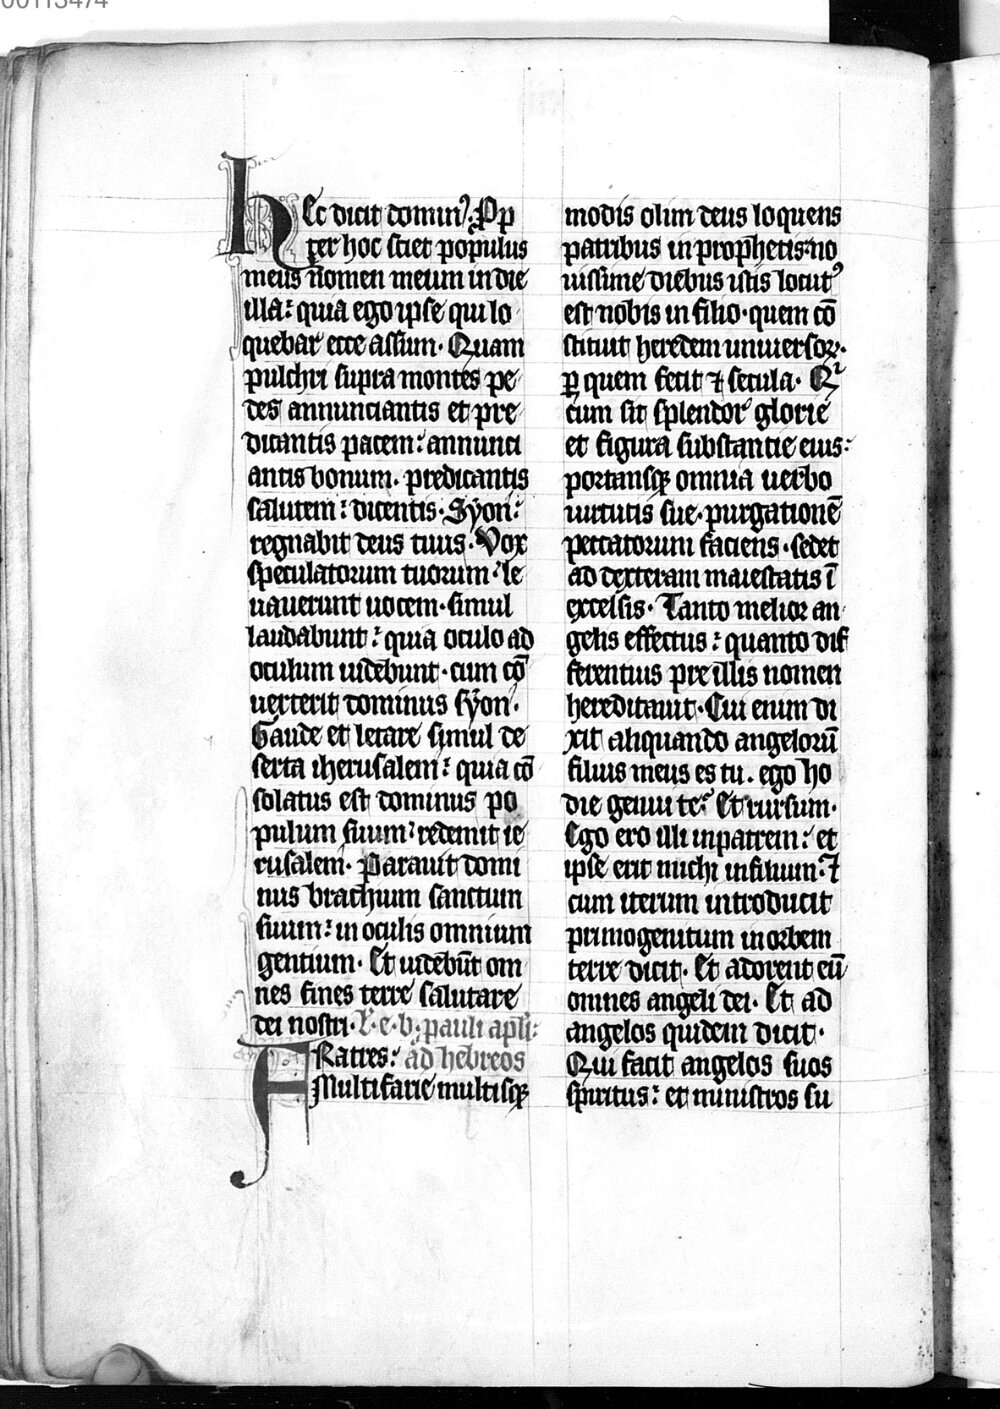 00113474
Hec dicit domin⁹. Pp
ter hoc sciet populus
meus nomen meum in die
illa: quia ego ipse qui lo
quebar ecce assum. Quam
pulchri supra montes pe
des annunciantis et pre
dicantis pacem: annunci
antis bonum. predicantis
salutem: dicentis. Syon:
regnabit deus tuus. Vox
speculatorum tuorum. le
uauerunt uocem. simul
laudabunt: quia oculo ad
oculum uidebunt. cum cō
uerterit dominus syon.
Gaude et letare simul de
serta iherusalem: quia cō
solatus est dominus po
pulum suum: redemit ie
rusalem. Parauit domi
nus brachium sanctum
suum: in oculis omnium
gentium. Et uidebūt om
nes fines terre salutare
dei nostri. L. e. b. pauli apli:
Fratres: ad hebreos
Multifarie multisqꝫ
modis olim deus loquens
patribus in prophetis: no
uissime diebus istis locut⁹
est nobis in filio. quem cō
stituit heredem uniuersoꝝ.
ꝑ quem fecit ⁊ secula. Qͥ
cum sit splendor glorie
et figura substantie eius:
portansqꝫ omnia uerbo
uirtutis sue. purgationē
peccatorum faciens. sedet
ad dexteram maiestatis ī
excelsis. Tanto melior an
gelis effectus: quanto dif
ferentius pre illis nomen
hereditauit. Cui enim di
xit aliquando angelorū
filius meus es tu. ego ho
die genui te: Et rursum.
Ego ero illi in patrem: et
ipse erit michi in filium. ⁊
cum iterum introducit
primogenitum in orbem
terre dicit. Et adorent eū
omnes angeli dei. Et ad
angelos quidem dicit.
Qui facit angelos suos
spiritus: et ministros su